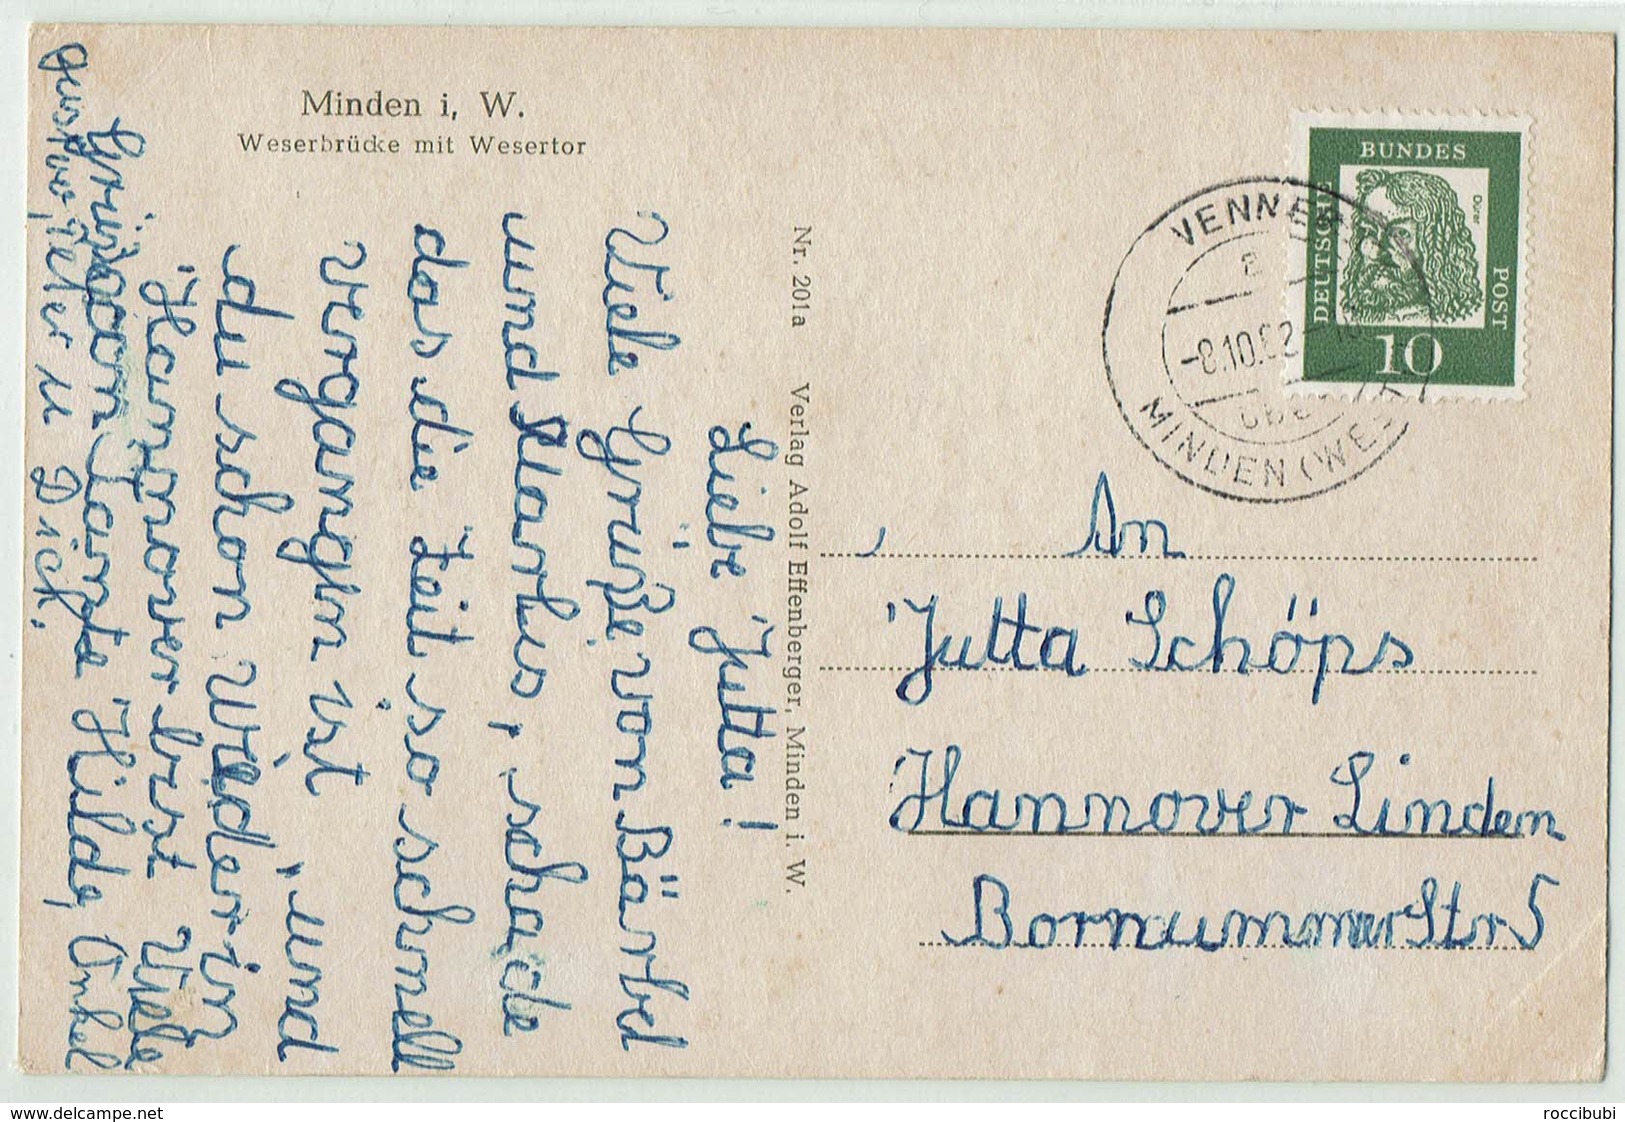 Minden i, W.
Weserbrücke mit Wesertor
Liebe Jutta!
Viele Grüße von Bärbel
und Markus, schade
das die Zeit so schnell
vergangen ist, und
du schon Wieder in
Hannover bist Viele
Grüße von Tante Hilde, Onkel
Peter u Dick.
Nr. 201a Verlag Adolf Effenberger, Minden i. W.
DEUTSCHE
BUNDES
POST
Dürer
10
VENNEB
a
-8.10.62-
über
MINDEN (WESTF
An
Jutta Schöps
Hannover Linden
Bornummer Str 5
roccibubi